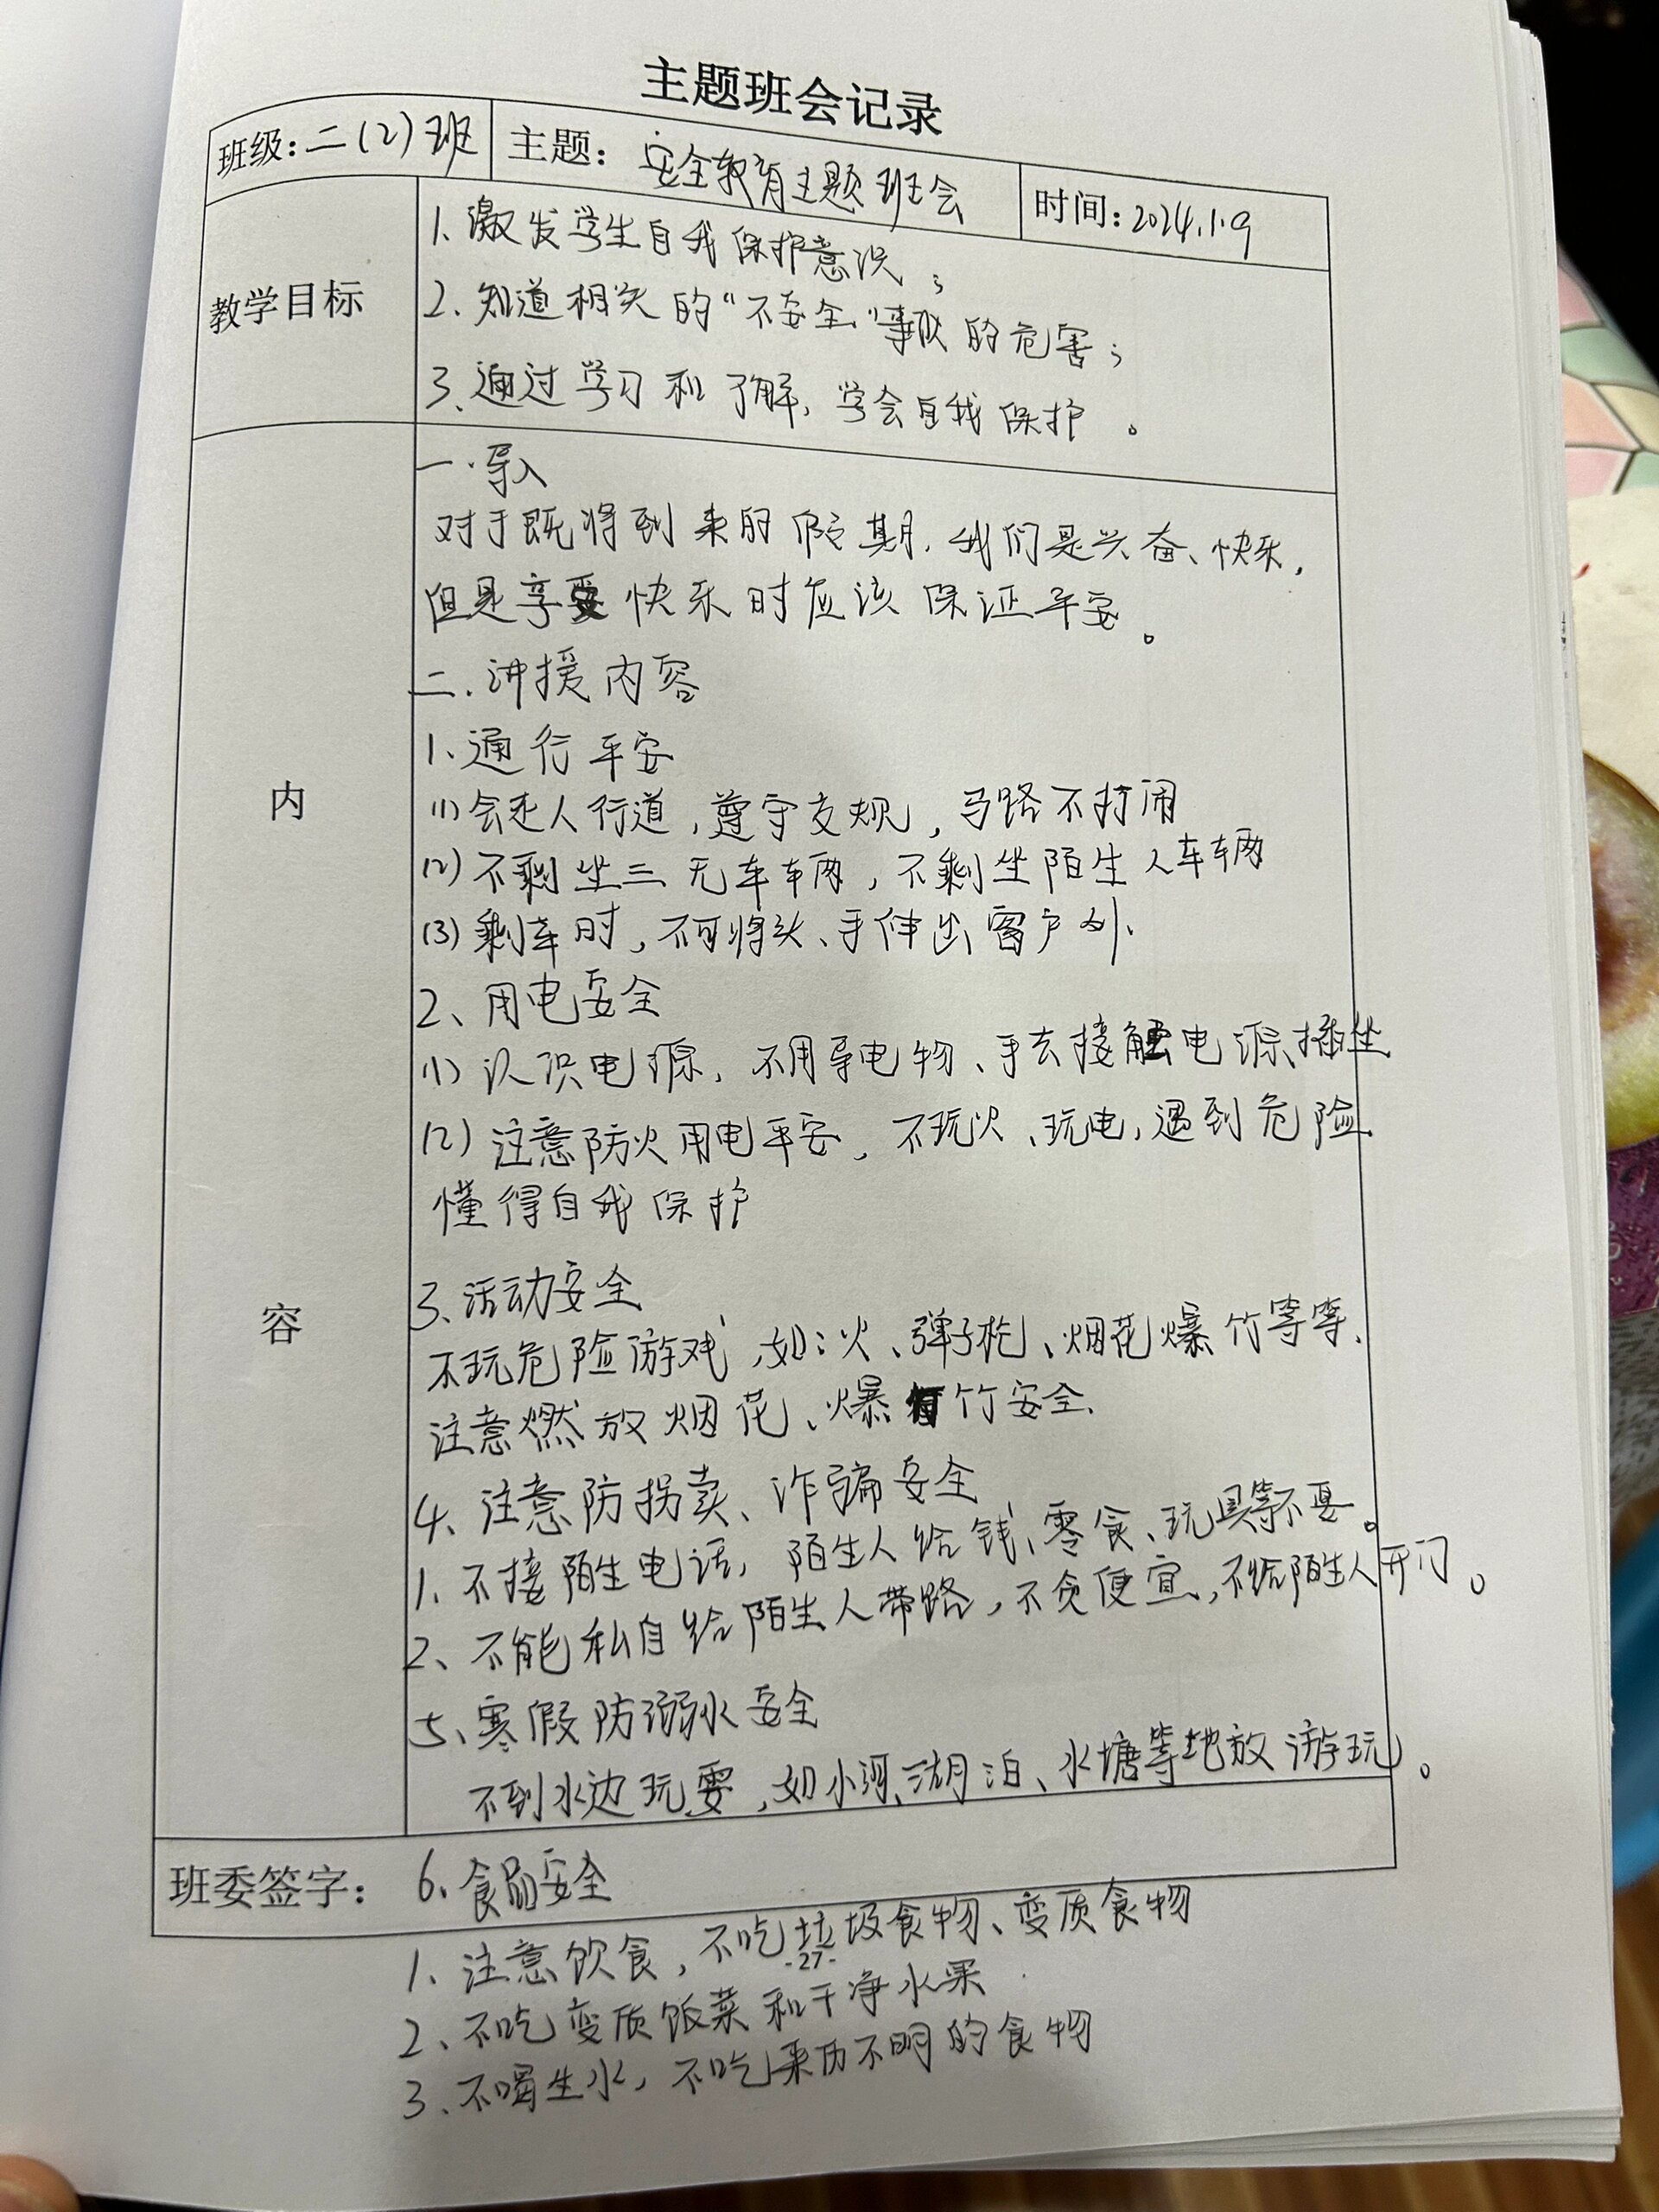 主题班会记录
班级：二（2）班 主题：安全教育主题班会 时间：2024.1.9
教学目标
1、激发学生自我保护意识；
2、知道相关的“不安全”事故的危害；
3、通过学习和了解，学会自我保护。
内容
一、导入
对于既将到来的假期，我们是兴奋、快乐，
但是享受快乐时应该保证平安。
二、讲授内容
1、通行平安
(1)会走人行道，遵守交规，马路不打闹
(2)不剩坐三无车车辆，不剩坐陌生人车车辆
(3)剩车时，不可将头、手伸出窗户外、
2、用电安全
(1)认识电源，不用导电物、手去接触电源、插坐
(2)注意防火用电平安，不玩火、玩电，遇到危险
懂得自我保护
3、活动安全
不玩危险游戏，如：火、弹子枪、烟花爆竹等等、
注意燃放烟花、爆竹安全、
4、注意防拐卖、诈骗安全
1、不接陌生电话，陌生人给钱、零食、玩具等不要。
2、不能私自给陌生人带路，不贪便宜，不给陌生人开门。
5、寒假防溺水安全
不到水边玩耍，如小河、湖泊、水塘等地放游玩。
班委签字： 6、食品安全
1、注意饮食，不吃垃圾食物、变质食物
-27-
2、不吃变质饭菜和干净水果
3、不喝生水，不吃来历不明的食物